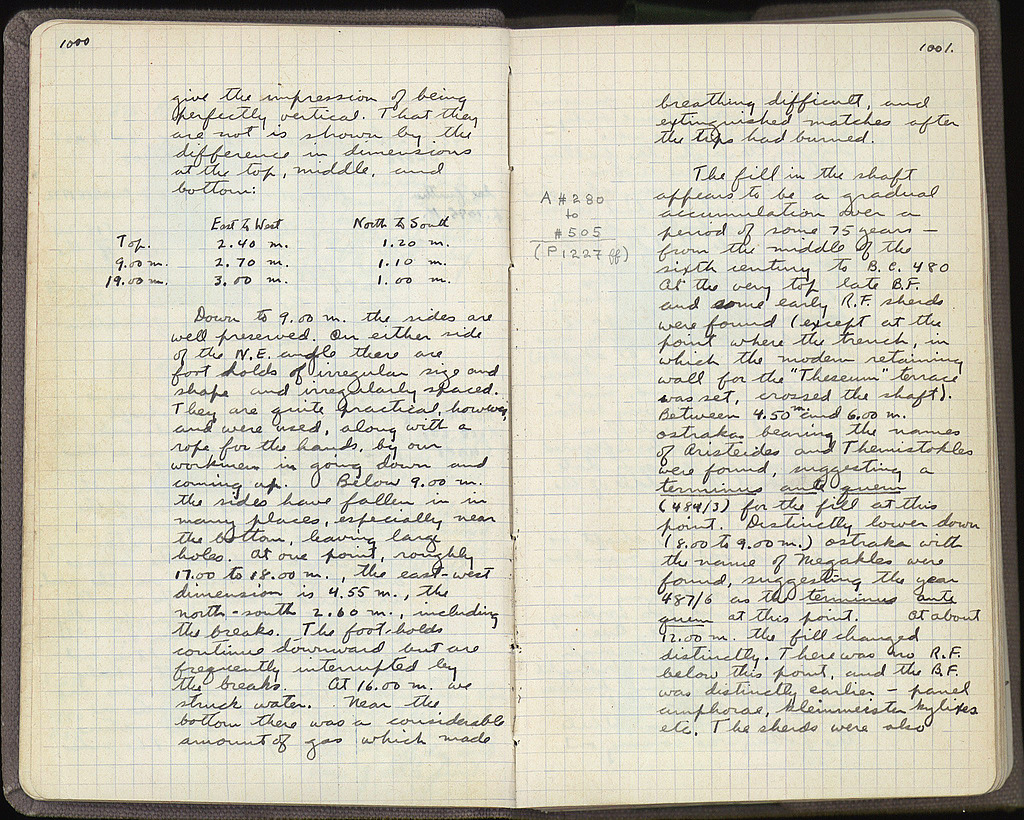 1000
give the impression of being
perfectly vertical. That they
are not is shown by the
difference in dimensions
at the top, middle, and
bottom:
East to West North to South
Top. 2.40 m. 1.20 m.
9.00 m. 2.70 m. 1.10 m.
19.00 m. 3.00 m. 1.00 m.
Down to 9.00 m. the sides are
well preserved. On either side
of the N.E. angle there are
foot holds of irregular size and
shape and irregularly spaced.
They are quite practical, however,
and were used, along with a
rope for the hands, by our
workmen in going down and
coming up. Below 9.00 m.
the sides have fallen in in
many places, especially near
the bottom, leaving large
holes. At one point, roughly
17.00 to 18.00 m., the east-west
dimension is 4.55 m., the
north-south 2.60 m., including
the breaks. The foot-holds
continue downward but are
frequently interrupted by
the breaks. At 16.00 m. we
struck water. Near the
bottom there was a considerable
amount of gas which made
1001.
breathing difficult, and
extinguished matches after
the tips had burned.
A #280
to
#505
(P 1227 ff)
The fill in the shaft
appears to be a gradual
accumulation over a
period of some 75 years –
from the middle of the
sixth century to B.C. 480
At the very top late B.F.
and some early R.F. sherds
were found (except at the
point where the trench, in
which the modern retaining
wall for the "Theseum" terrace
was set, crossed the shaft).
Between 4.50 m. and 6.00 m.
ostraka bearing the names
of Aristeides and Themistokles
were found, suggesting a
terminus ante quem
(484/3) for the fill at this
point. Distinctly lower down
(8.00 to 9.00 m.) ostraka with
the name of Megakles were
found, suggesting the year
487/6 as the terminus ante
quem at this point. At about
12.00 m. the fill changed
distinctly. There was no R.F.
below this point, and the B.F.
was distinctly earlier – panel
amphorae, kleinmeister kylixes
etc. The sherds were also